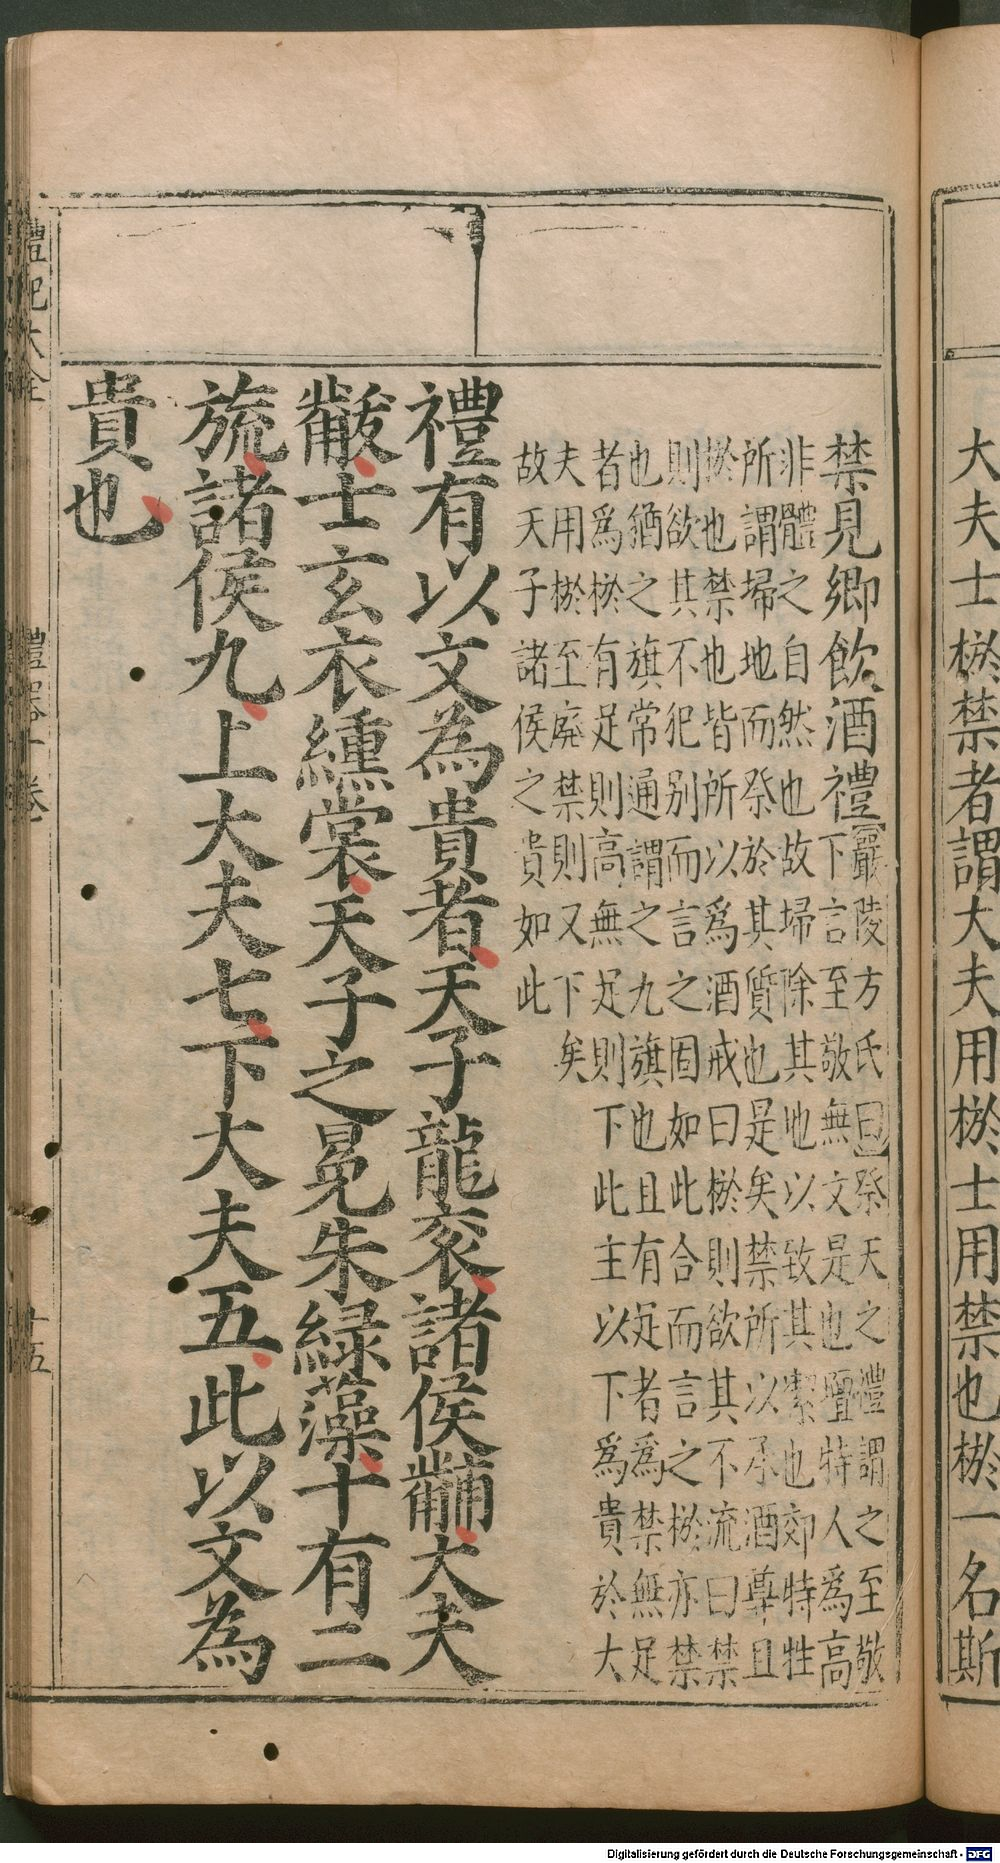 大夫士棜禁者謂大夫用棜士用禁也棜一名斯
禁見鄉飲酒禮
嚴陵方氏曰祭天之禮謂之至敬
下言至敬無文是也壇特人為高
非體之自然也故埽除其地以致其潔也郊特牲
所謂埽地而祭於其質也是矣禁所以承酒尊且
棜也禁也皆所以為酒戒曰棜則欲其不流曰禁
則欲其不犯別而言之固如此合而言之棜亦禁
也猶之旗常通謂之九旗也且有足者為禁無足
者為棜有足則高無足則下此主以下為貴於大
夫用棜至廢禁則又下矣
故天子諸侯之貴如此
禮有以文為貴者天子龍衮諸侯黼大夫
黻士玄衣纁裳天子之冕朱綠藻十有二
旒諸侯九上大夫七下大夫五此以文為
貴也
禮記大全
禮器十卷
十五
Digitalisierung gefördert durch die Deutsche Forschungsgemeinschaft - DFG